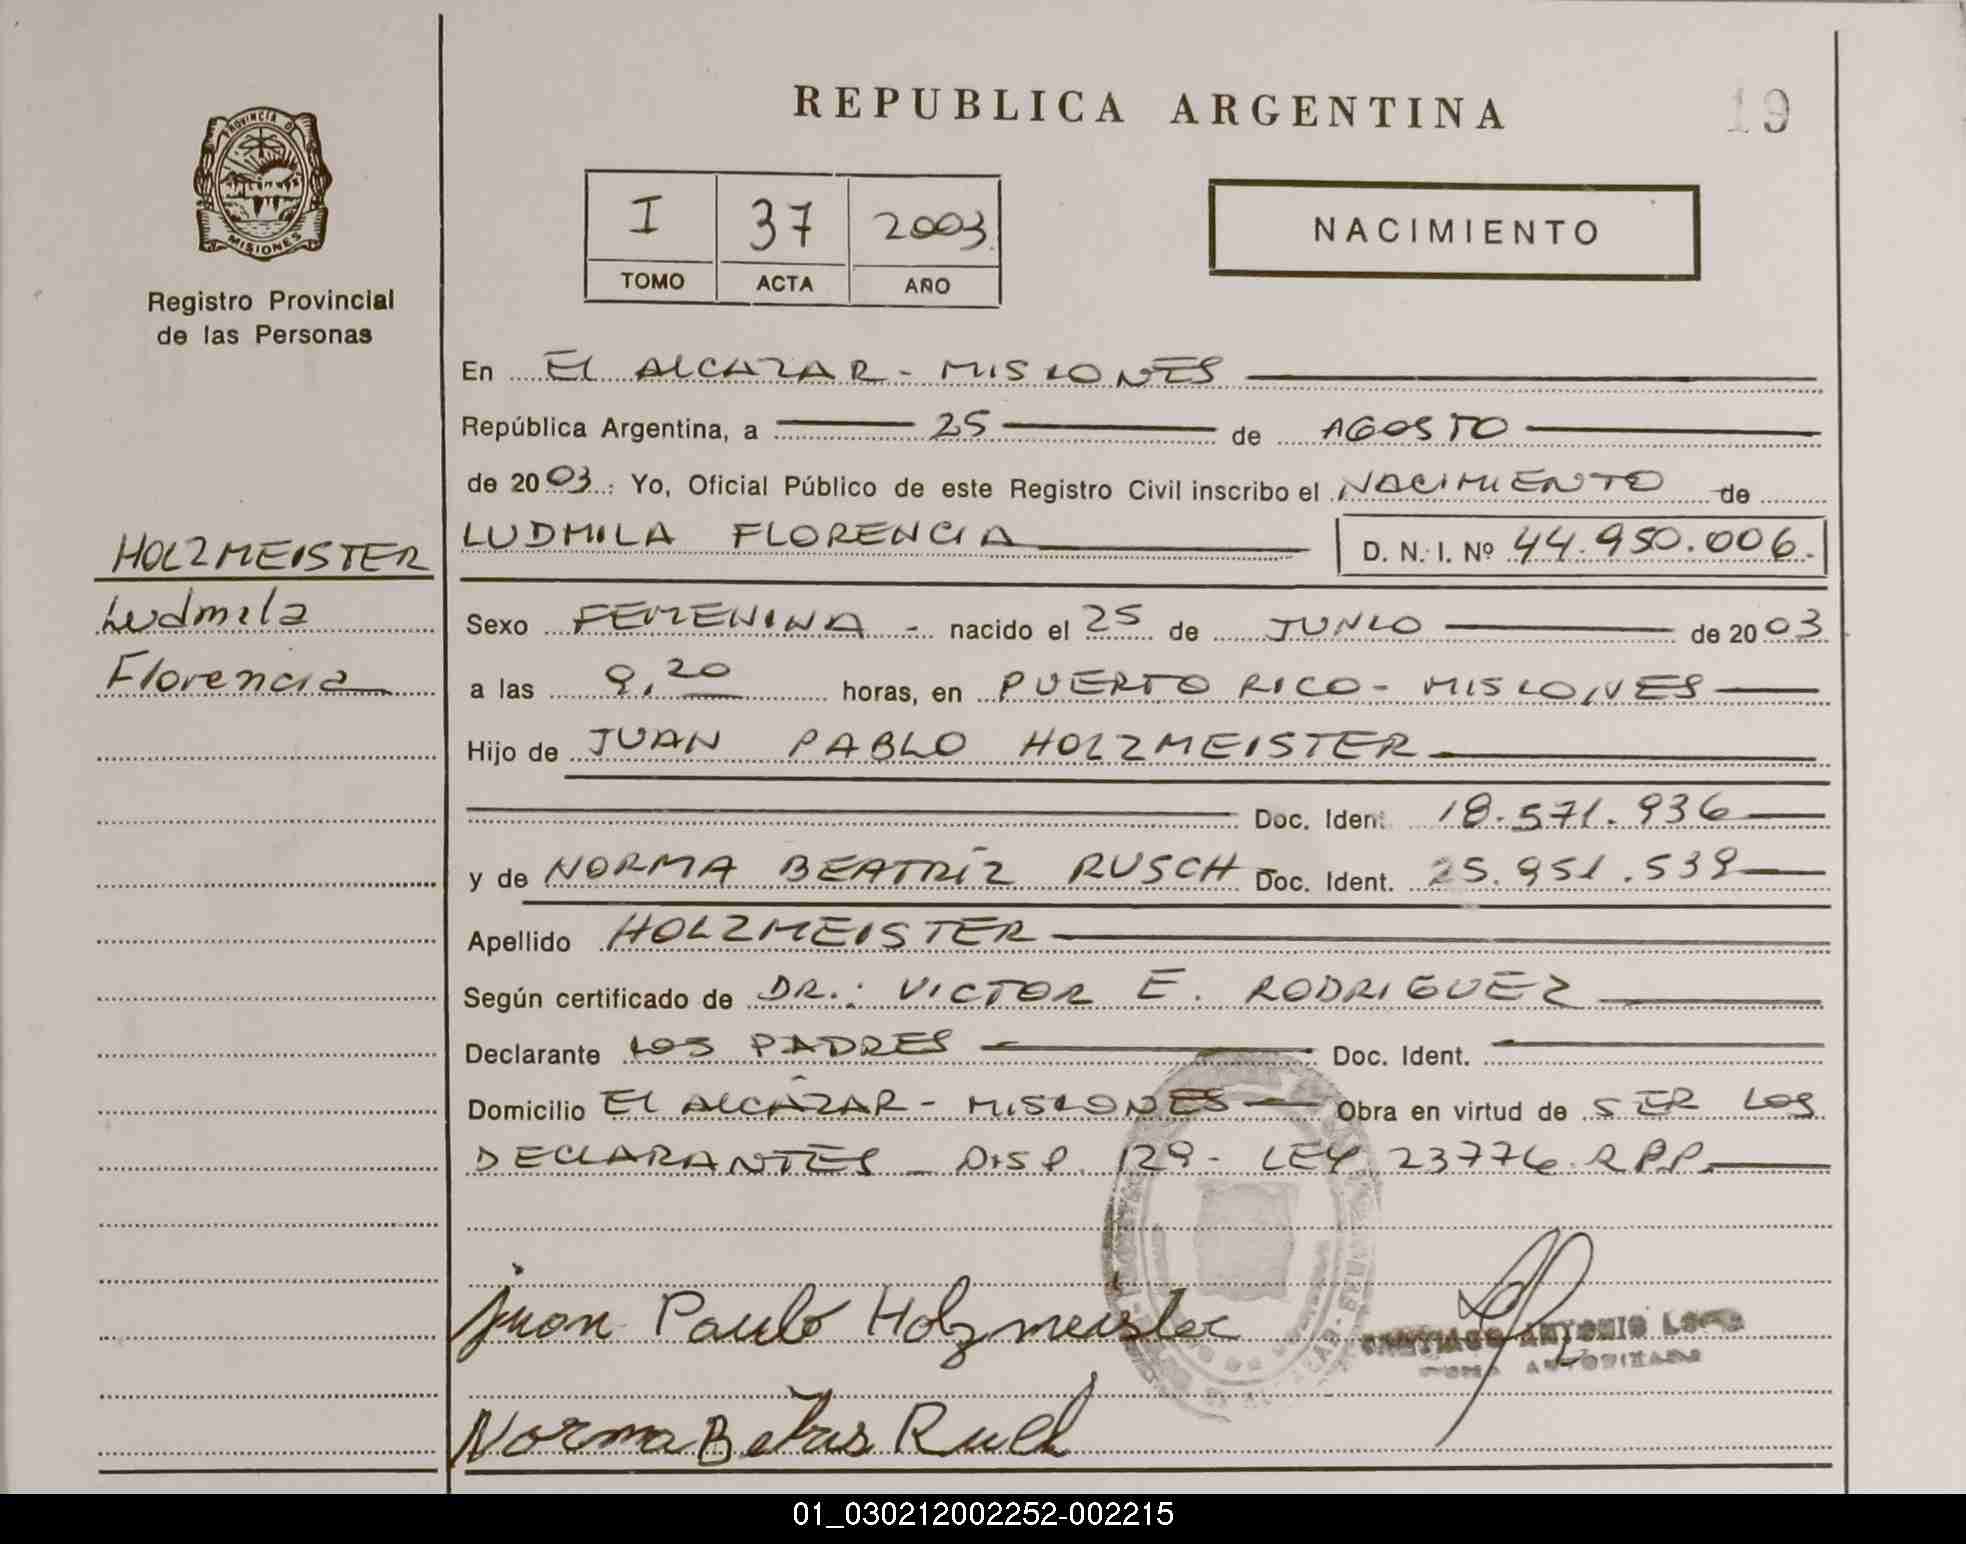 REPUBLICA ARGENTINA
19
PROVINCIA D
MISIONES
Registro Provincial
de las Personas
I 37 2003
TOMO ACTA AÑO
NACIMIENTO
HOLZMEISTER
Ludmila
Florencia
En EL ALCAZAR - MISIONES
República Argentina, a 25 de AGOSTO
de 2003: Yo, Oficial Público de este Registro Civil inscribo el NACIMIENTO de
LUDMILA FLORENCIA D. N. I. Nº 44.950.006.
Sexo FEMENINA - nacido el 25 de JUNIO de 2003
a las 9,20 horas, en PUERTO RICO - MISIONES
Hijo de JUAN PABLO HOLZMEISTER
Doc. Ident. 18.571.936
y de NORMA BEATRÍZ RUSCH Doc. Ident. 25.951.539
Apellido HOLZMEISTER
Según certificado de DR.: VICTOR E. RODRIGUEZ
Declarante LOS PADRES Doc. Ident.
Domicilio EL ALCÁZAR - MISIONES Obra en virtud de SER LOS
DECLARANTES - DISP. 129 - LEY 23776. R.P.P.
juan Paulo Holzmeister
SANTIAGO ANTONIO
Norma
01_030212002252-002215